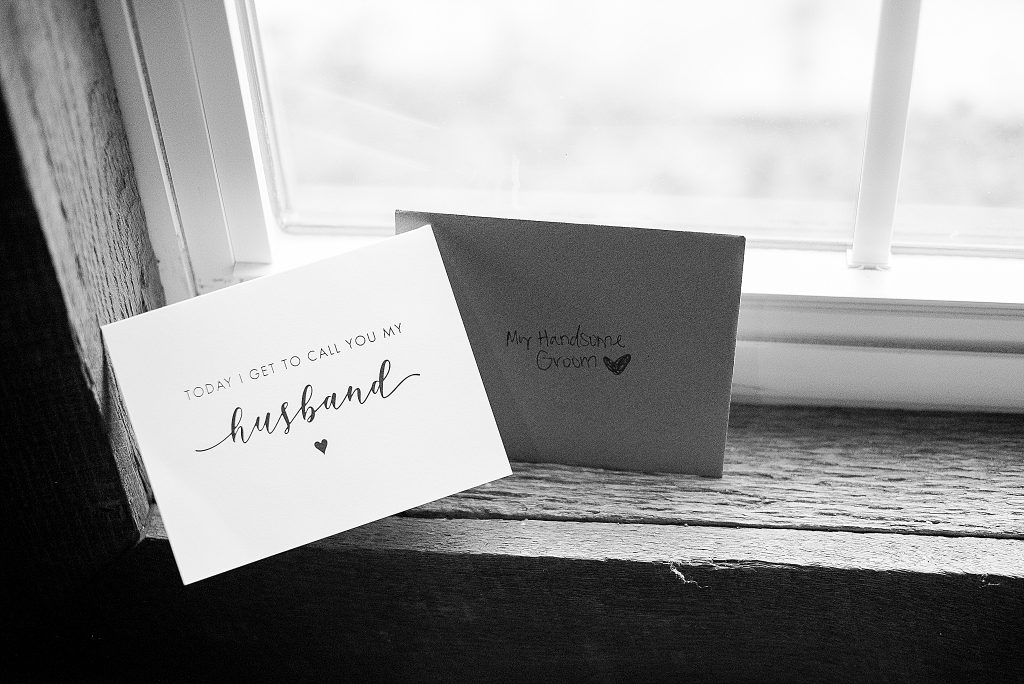 TODAY I GET TO CALL YOU MY
husband
My Handsome
Groom